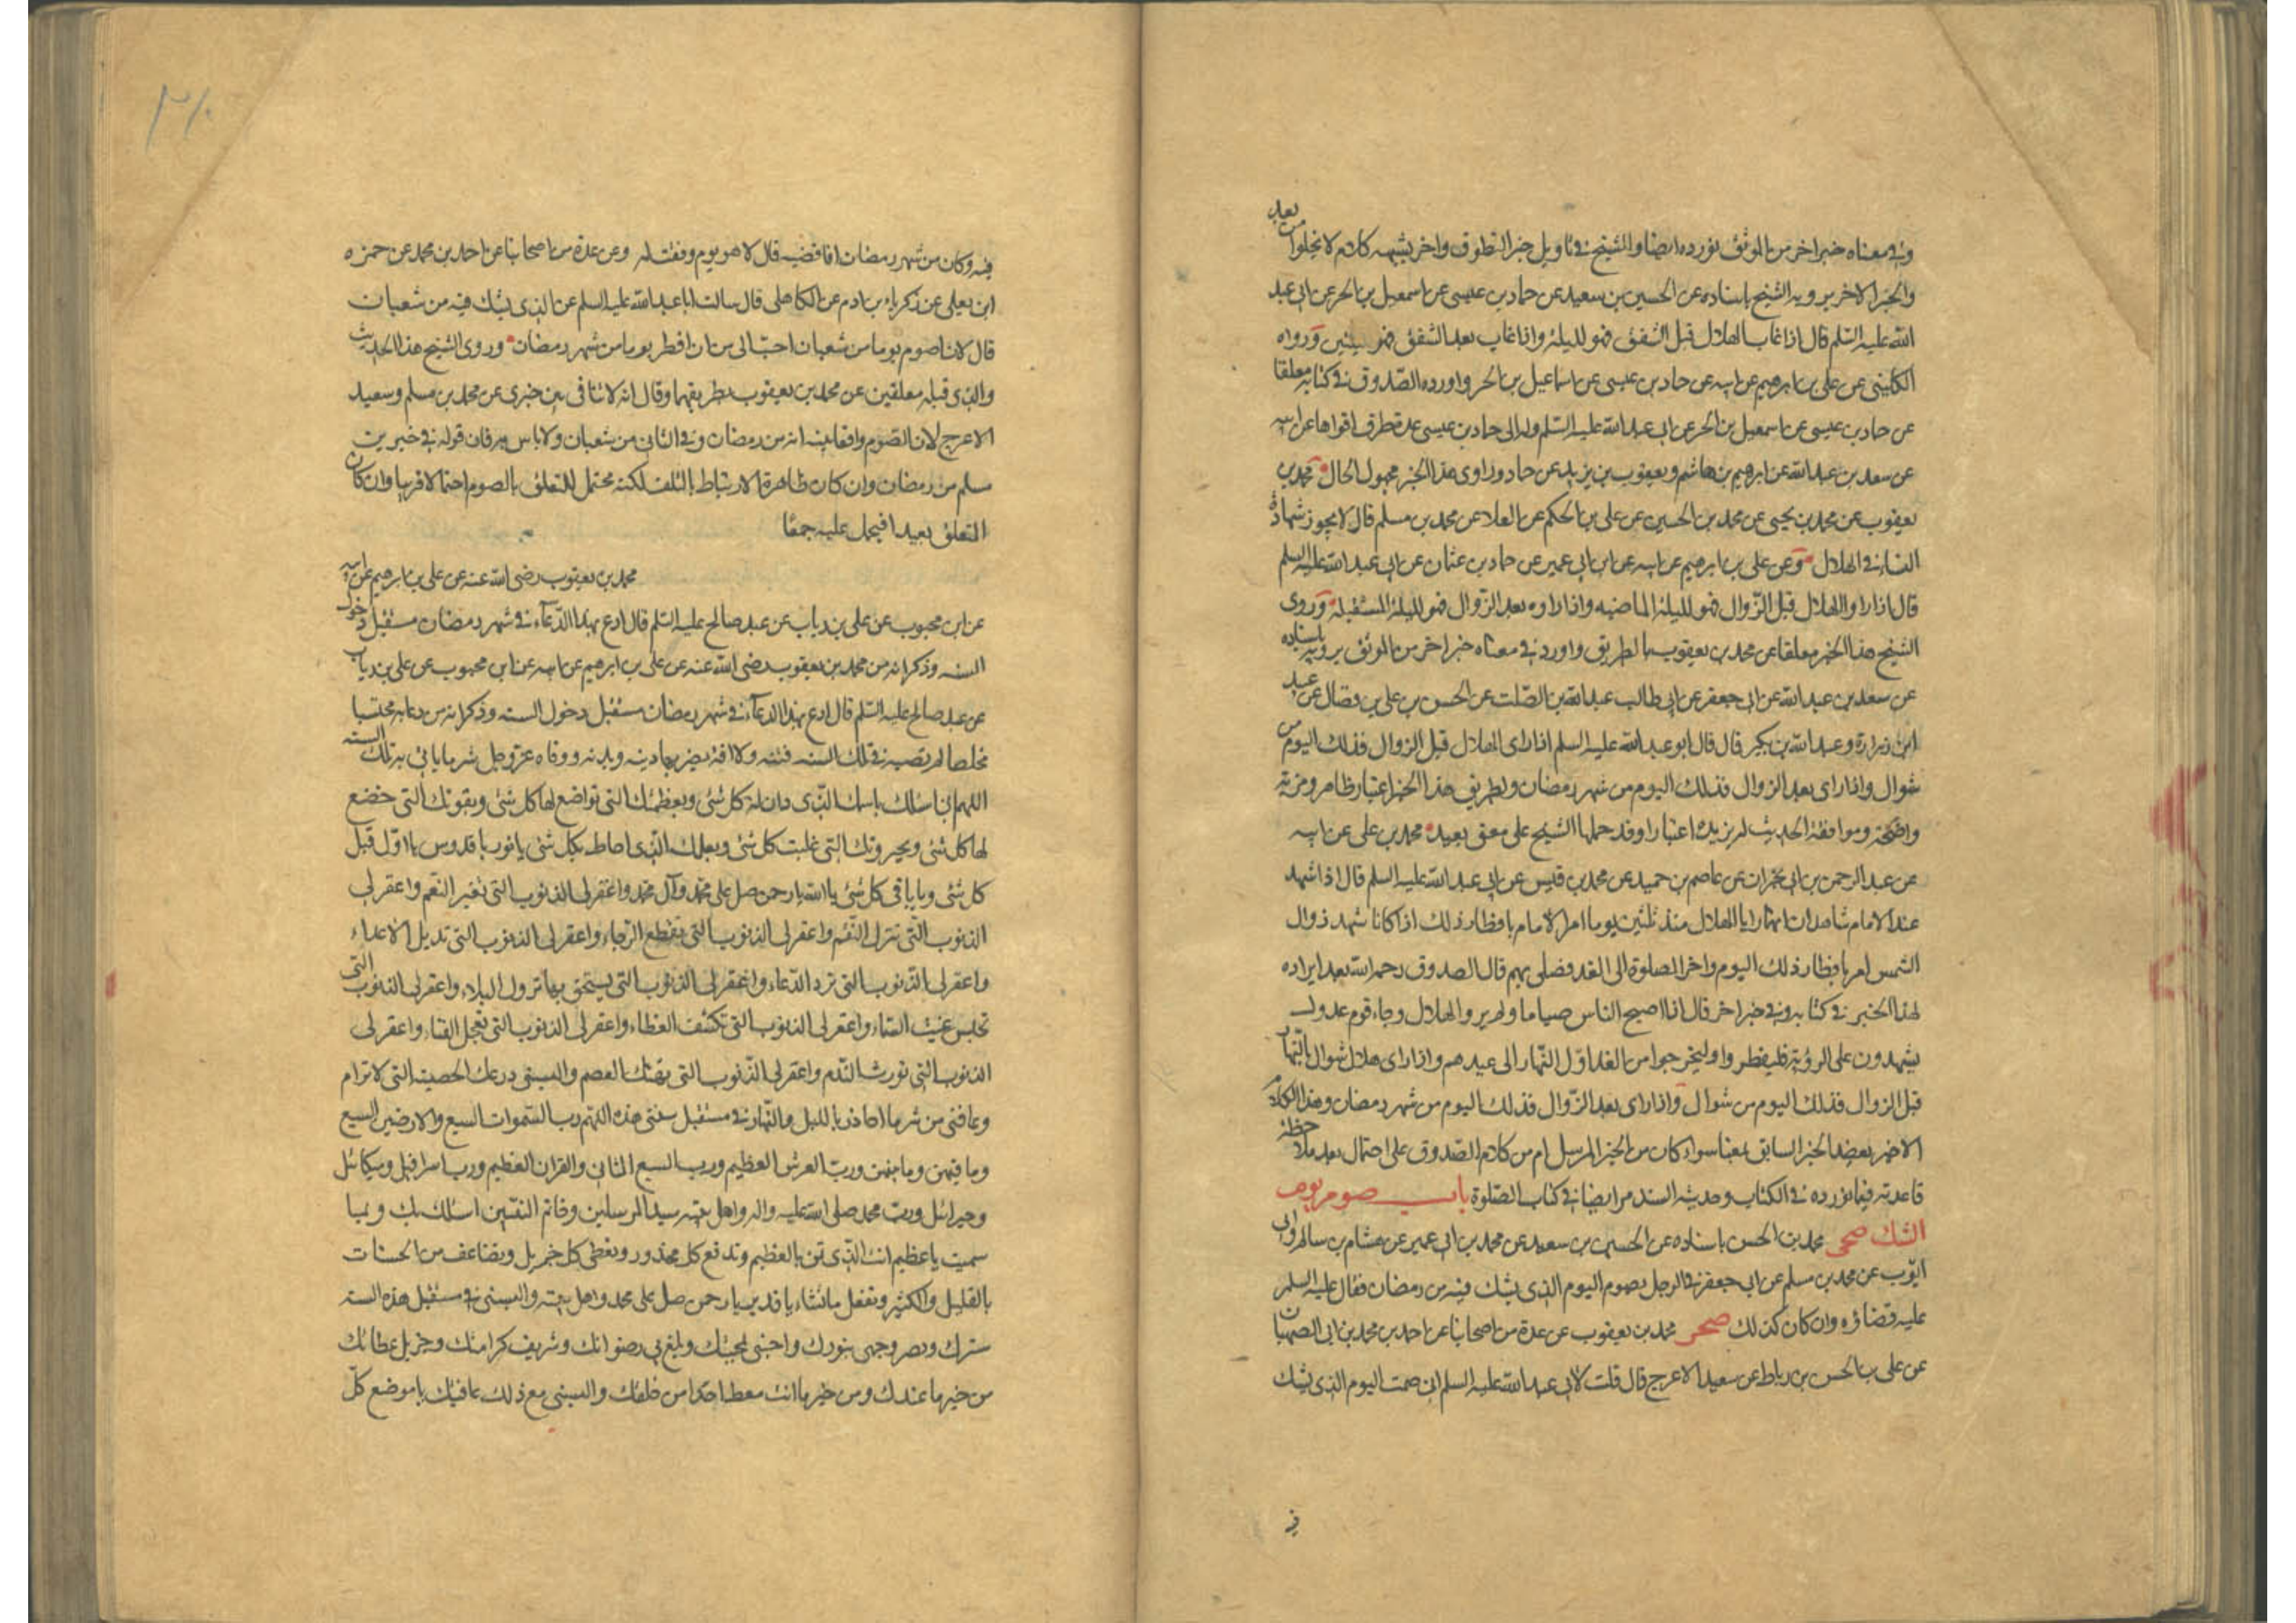 وفي معناه خبر اخر من الموثق نورده ايضا وللشيخ في تاويل خبر التطوق واخر يشبهه كلام لا يخلوا من بعد
والخبر الاخر يرويه الشيخ باسناده عن الحسين بن سعيد عن حماد بن عيسى عن اسمعيل بن الحر عن ابي عبد
الله عليه السلم قال اذا غاب الهلال قبل الشفق فهو لليلة واذا غاب بعد الشفق فهو لليلتين ورواه
الكليني عن علي بن ابرهيم عن ابيه عن حماد بن عيسى عن اسماعيل بن الحر واورده الصدوق في كتابه معلقا
عن حماد بن عيسى عن اسمعيل بن الحر عن ابي عبد الله عليه السلم وله الى حماد بن عيسى عدة طرق اقواها عن ابيه
عن سعد بن عبد الله عن ابرهيم بن هاشم ويعقوب بن يزيد عن حماد وراوى هذا الخبر مجهول الحال محمد بن
يعقوب عن محمد بن يحيى عن محمد بن الحسين عن علي بن الحكم عن العلا عن محمد بن مسلم قال لا يجوز شهادة
النساء في الهلال وعن علي بن ابرهيم عن ابيه عن ابن ابي عمير عن حماد بن عثمان عن ابي عبد الله عليه السلم
قال اذا راوا الهلال قبل الزوال فهو لليلة الماضيه واذا راوه بعد الزوال فهو لليلة المستقبلة وروى
الشيخ هذا الخبر معلقا عن محمد بن يعقوب بالطريق واورد في معناه خبر اخر من الموثق يرويه باسناده
عن سعد بن عبد الله عن ابي جعفر عن ابي طالب عبد الله بن الصلت عن الحسن بن علي بن فضال عن عبيد
ابن زرارة وعبد الله بن بكير قال قال ابو عبد الله عليه السلم اذا راى الهلال قبل الزوال فذلك اليوم من
شوال واذا راى بعد الزوال فذلك اليوم من شهر رمضان ولطريق هذا الخبر اعتبار ظاهر ومزية
واضحة وموافقة الحديث له يزيده اعتبارا وقد حملها الشيخ على معنى بعيد محمد بن علي عن ابيه
عن عبد الرحمن بن ابي نجران عن عاصم بن حميد عن محمد بن قيس عن ابي عبد الله عليه السلم قال اذا شهد
عند الامام شاهدان انهما رايا الهلال منذ ثلثين يوما امر الامام بافطار ذلك اذا كانا شهد زوال
الشمس امر بافطار ذلك اليوم واخر الصلوة الى الغد فصلى بهم قال الصدوق رحمه الله بعد ايراده
لهذا الخبر في كتابه وفي خبر اخر قال اذا اصبح الناس صياما ولم يروا الهلال وجاء قوم عدول
يشهدون على الرؤية فليفطروا وليخرجوا من الغد اول النهار الى عيدهم واذا راى هلال شوال بالنهار
قبل الزوال فذلك اليوم من شوال واذا راى بعد الزوال فذلك اليوم من شهر رمضان وهذا الكلام
الاخير يعضد الخبر السابق بمعناه سواء كان من الخبر المرسل ام من كلام الصدوق على احتمال بعد ملاحظة
قاعدته فيما يورده في الكتاب وحديثه السند مر ايضا في كتاب الصلوة باب صوم يوم
الشك صحى محمد بن الحسن باسناده عن الحسين بن سعيد عن محمد بن ابي عمير عن هشام بن سالم وابى
ايوب عن محمد بن مسلم عن ابي جعفر في الرجل يصوم اليوم الذي يشك فيه من رمضان فقال عليه السلم
عليه قضاؤه وان كان كذلك صحر محمد بن يعقوب عن عدة من اصحابنا عن احمد بن محمد بن ابي الصهبان
عن علي بن الحسن بن رباط عن سعيد الاعرج قال قلت لابي عبد الله عليه السلم اني صمت اليوم الذي يشك
في
فيه وكان من شهر رمضان افاقضيه قال لا هو يوم وفقت له وعن عدة من اصحابنا عن احمد بن محمد عن حمزه
ابن يعلى عن زكرياء بن ادم عن الكاهلى قال سالت ابا عبد الله عليه السلم عن الذي يشك فيه من شعبان
قال لان اصوم يوما من شعبان احب الى من ان افطر يوما من شهر رمضان وروى الشيخ هذا الحديث
والذي قبله معلقين عن محمد بن يعقوب بطريقهما وقال انه لا تنافى بين خبرى عن محمد بن مسلم وسعيد
الاعرج لان الصوم وافقا بنية انه من رمضان وفي الثاني من شعبان ولا باس به فان قوله في خبر بن
مسلم من رمضان وان كان ظاهره الارتباط بالشك لكنه محتمل للتعلق بالصوم احتمالا قريبا وان كان
التعلق بعيدا فيحمل عليه جمعا
محمد بن يعقوب رضى الله عنه عن علي بن ابرهيم عن ابيه
عن ابن محبوب عن علي بن رياب عن عبد صالح عليه السلم قال ادع بهذا الدعآء في شهر رمضان مستقبل دخول
السنه وذكر انه من محمد بن يعقوب رضى الله عنه عن علي بن ابرهيم عن ابيه عن ابن محبوب عن علي بن رياب
عن عبد صالح عليه السلم قال ادع بهذا الدعآء في شهر رمضان مستقبل دخول السنه وذكر انه من دعا به محتسبا
مخلصا لم تصبه في تلك السنه فتنه ولا افة يضر بها دينه وبدنه ووقاه عز وجل شر ما ياتي به تلك السنه
اللهم اني اسئلك باسمك الذي دان له كل شئ وبعظمتك التي تواضع لها كل شئ وبقوتك التي خضع
لها كل شئ وبجبروتك التي غلبت كل شئ وبعلمك الذي احاط بكل شئ يا نور يا قدوس يا اول قبل
كل شئ ويا باقى كل شئ يا الله يا رحمن صل على محمد وآل محمد واغفر لى الذنوب التي تغير النعم واغفر لي
الذنوب التي تنزل النقم واغفر لي الذنوب التي تقطع الرجاء واغفر لي الذنوب التي تديل الاعداء
واغفر لي الذنوب التي ترد الدعاء واغفر لي الذنوب التي يستحق بها نزول البلاء واغفر لي الذنوب التي
تحبس غيث السماء واغفر لي الذنوب التي تكشف الغطاء واغفر لي الذنوب التي تعجل الفناء واغفر لي
الذنوب التي تورث الندم واغفر لي الذنوب التي تهتك العصم والبسنى درعك الحصينه التي لا ترام
وعافنى من شر ما احاذر بالليل والنهار في مستقبل سنتى هذه اللهم رب السموات السبع والارضين السبع
وما فيهن وما بينهن ورب العرش العظيم ورب السبع المثاني والقران العظيم ورب اسرافيل وميكائيل
وجبرائيل ورب محمد صلى الله عليه واله واهل بيته سيد المرسلين وخاتم النبيين اسئلك بك وبما
سميت يا عظيم انت الذي تمن بالعظيم وتدفع كل محذور وتعطى كل جزيل وتضاعف من الحسنات
بالقليل والكثير وتفعل ما تشاء يا قدير يا رحمن صل على محمد واهل بيته والبسنى في مستقبل هذه السنة
سترك ونضر وجهى بنورك واحبنى بمحبتك وبلغ بى رضوانك وشريف كرامتك وجزيل عطائك
من خير ما عندك ومن خير ما انت معط احدا من خلقك والبسنى مع ذلك عافيتك يا موضع كل